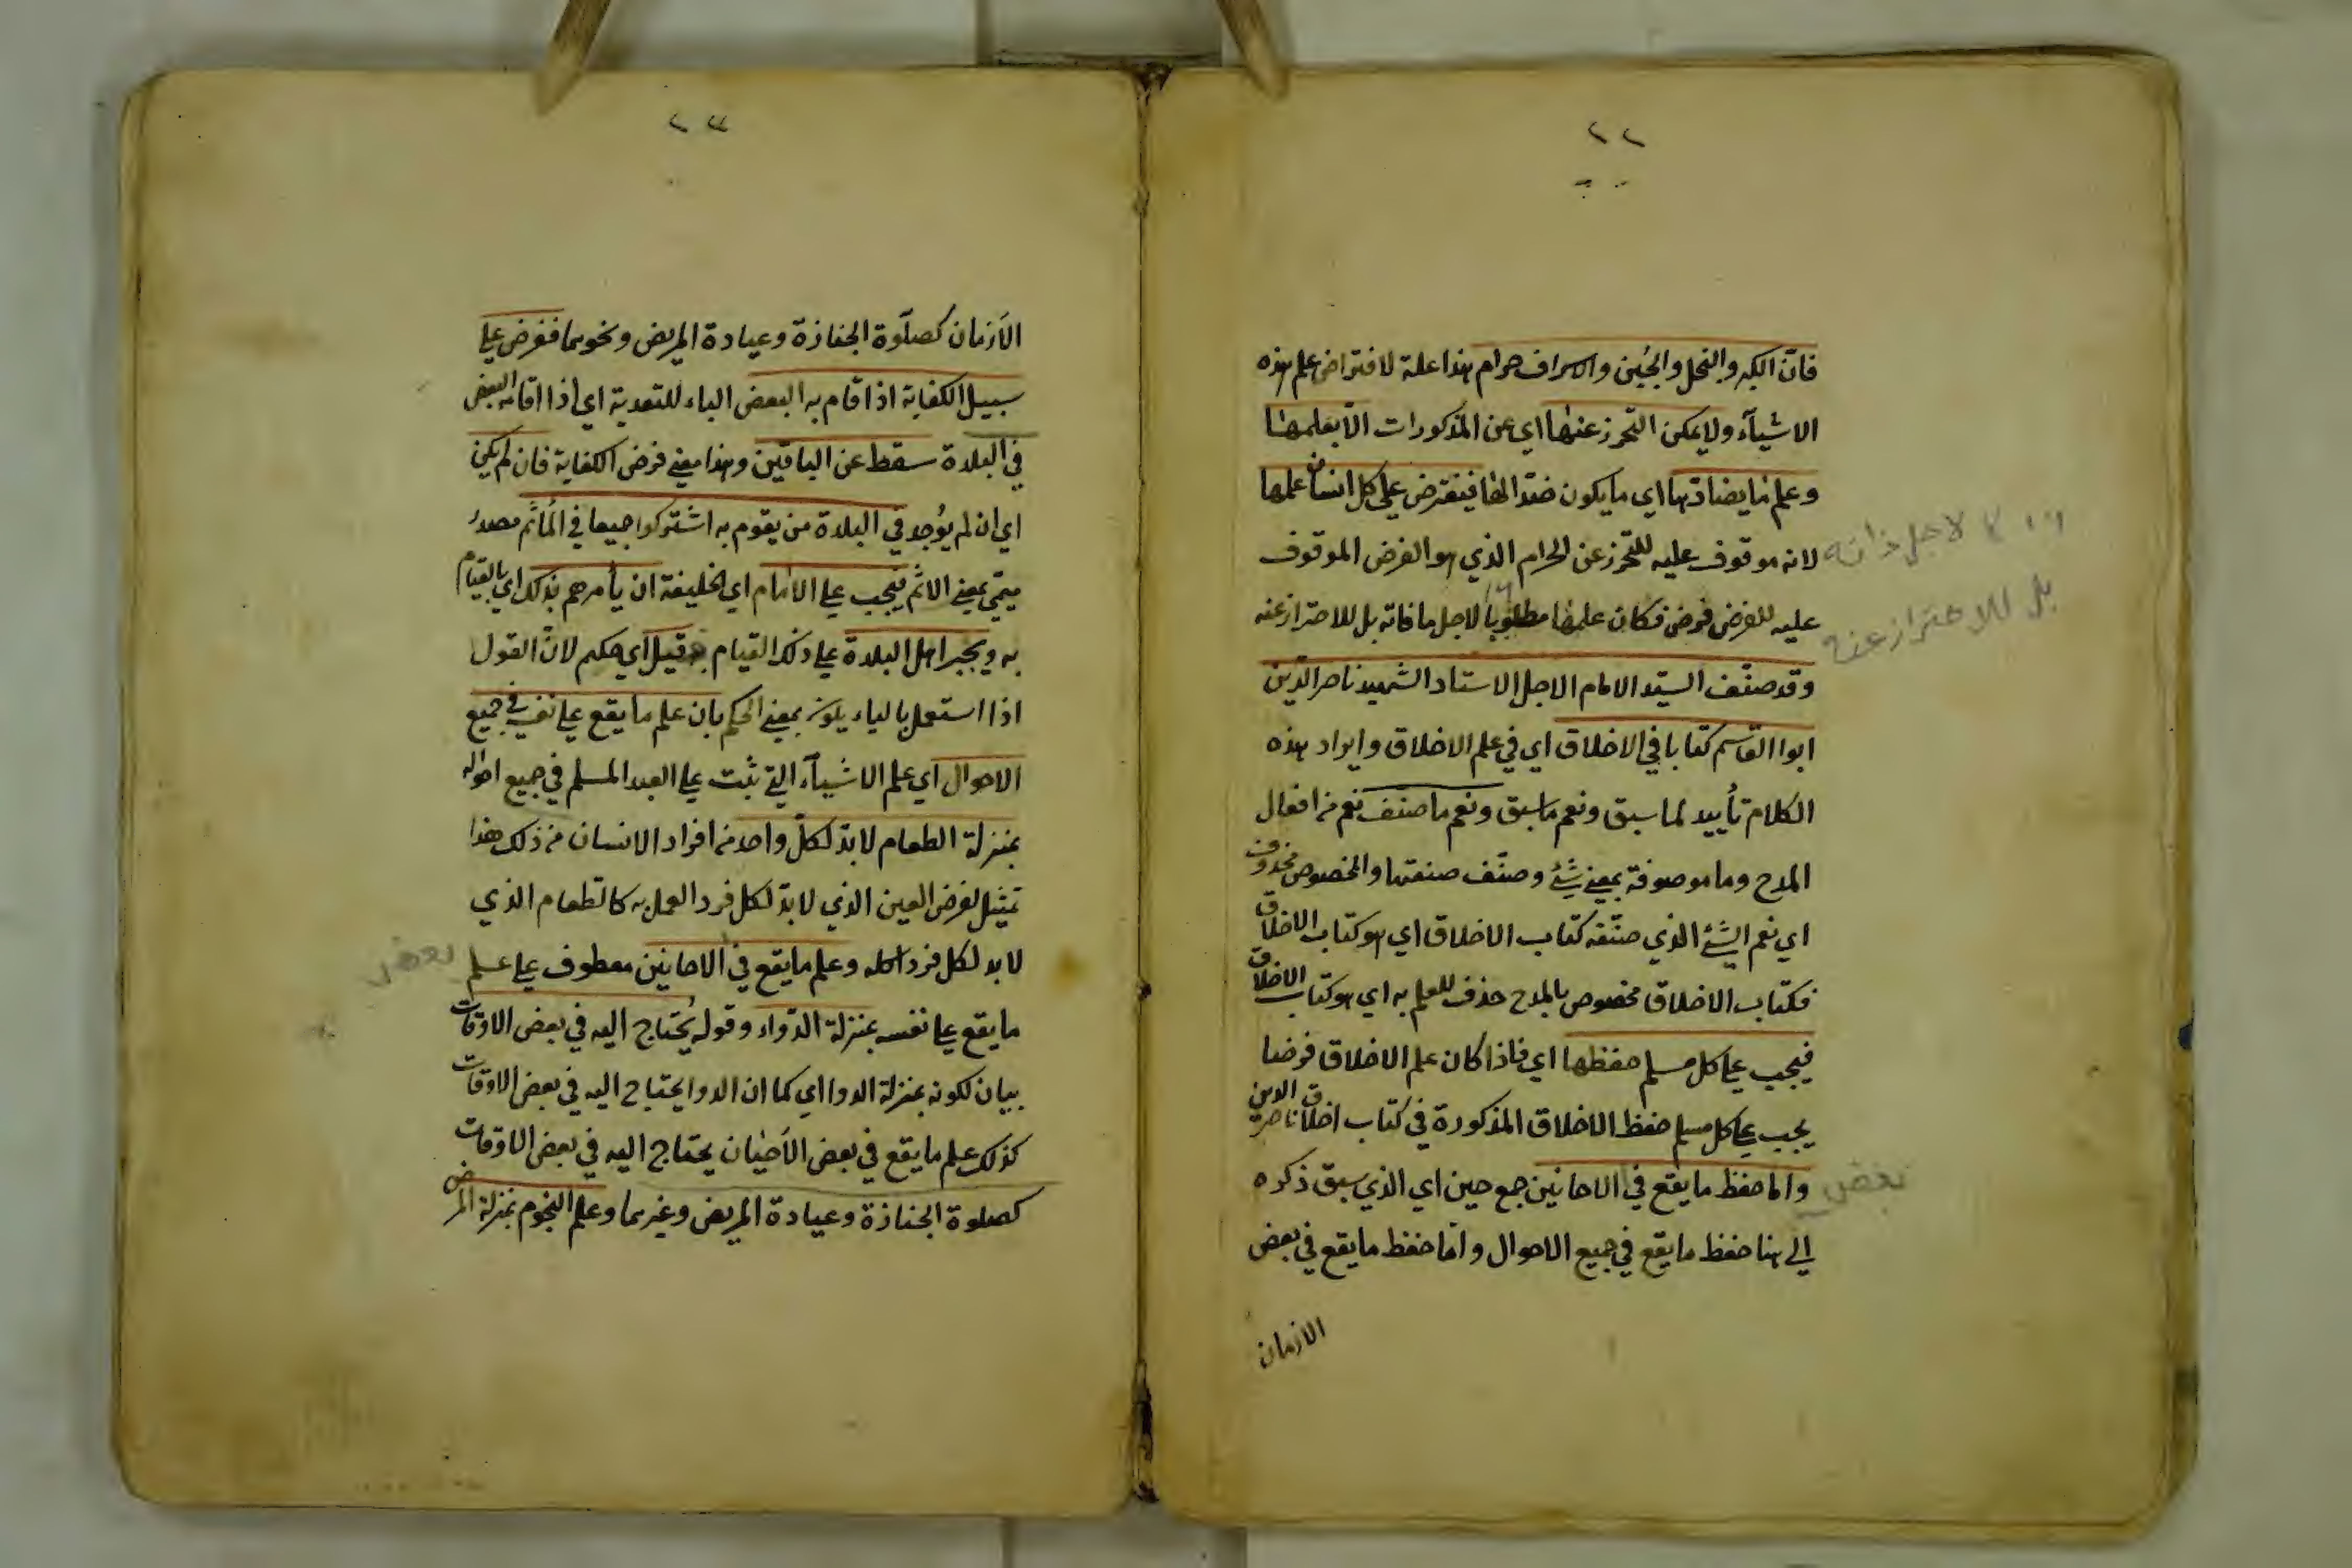 ٢٢
فانّ الكبر والبخل والجبن والاسراف حرام هذا علة لافتراض علم هذه
الاشيآء ولا يمكن التحرز عنها اى عن المذكورات الّا بعلمها
وعلم ما يضادّها اى ما يكون ضدّا لها فيفترض على كل انسان علمها
لانه موقوف عليه للتحرز عن الحرام الذي هو الفرض الموقوف
عليه للفرض فرض فكان علمها مطلوبا لاجل مافاته بل للاحتراز عنه
لا لاجل ذاته
بل للاحتراز عنه
وقد صنّف السيّد الامام الاجل الاستاد الشهيد ناصر الدّين
ابوا القاسم كتابا في الاخلاق اي في علم الاخلاق وايراد هذه
الكلام تأييد لما سبق ونعم ما سبق ونعم ما صنّف نعم من افعال
المدح وما موصوفة بمعنى شئ وصنّف صفتها والمخصوص محذوف
اي نعم الشئ الذي صنّفه كتاب الاخلاق اي هو كتاب الاخلاق
فكتاب الاخلاق مخصوص بالمدح حذف للعلم به اي هو كتاب الاخلاق
فيجب على كل مسلم حفظها اي فاذا كان علم الاخلاق فرضا
يجب على كل مسلم حفظ الاخلاق المذكورة في كتاب اخلاق ناصر الدين
واما حفظ ما يقع في الاحايين جمع حين اي الذي سبق ذكره
بعض
الى هنا حفظ ما يقع في جميع الاحوال وامّا حفظ ما يقع في بعض
الازمان
٢٣
الازمان كصلوة الجنازة وعيادة المريض ونحوهما ففرض على
سبيل الكفاية اذا قام به البعض الباء للتعدية اي اذا اقامه البعض
في البلدة سقط عن الباقين وهذا معنى فرض الكفاية فان لم يكن
اي ان لم يوجد في البلدة من يقوم به اشتركوا جميعا في المأثم مصدر
ميمي بمعنى الاثم فيجب على الامام اي الخليفة ان يأمرهم بذلك اي بالقيام
به ويجبر اهل البلدة على ذلك القيام قيل اي حكم لانّ القول
اذا استعمل بالباء يكون بمعنى الحكم بان علم ما يقع على نفسه في جميع
الاحوال اي علم الاشيآء التي تثبت على العبد المسلم في جميع احواله
بمنزلة الطعام لابدّ لكلّ واحد من افراد الانسان من ذلك هذا
تمثيل لفرض العين الذي لابدّ لكل فرد العمل به كالطعام الذي
لابد لكل فرد اكله وعلم ما يقع في الاحايين معطوف على علم
بعض
ما يقع على نفسه بمنزلة الدّواء وقوله يُحتاج اليه في بعض الاوقات
بيان لكونه بمنزلة الدوا اي كما ان الدوا يحتاج اليه في بعض الاوقات
كذلك علم ما يقع في بعض الاحيان يحتاج اليه في بعض الاوقات
كصلوة الجنازة وعيادة المريض وغيرهما وعلم النجوم بمنزلة المرض